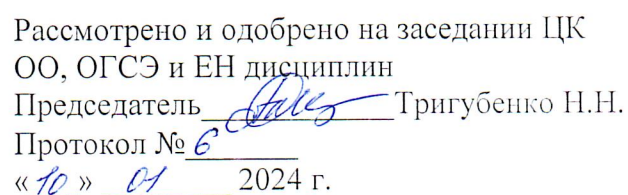 Рассмотрено и одобрено на заседании ЦК
ОО, ОГСЭ и ЕН дисциплин
Председатель______________Тригубенко Н.Н.
Протокол №6________
«10» 01________ 2024 г.